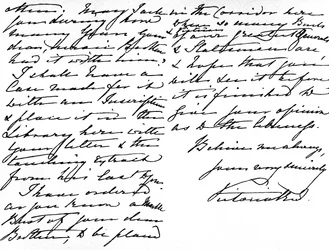 many
your
dear
had it with him,
I shall have a
Case made for it
with an Inscription
& place it in the
Library here with
your letter & the
touching extract
from his last to you.
I have ordered
as you know a Marble
Bust of your dear
Brother, to be placed
in the Corridor here
where so many Busts
of our greatest Generals
& Statesmen are
& hope that you
will see it before
it is finished to
give your opinion
as to the likeness.
Believe me always,
yours very sincerely